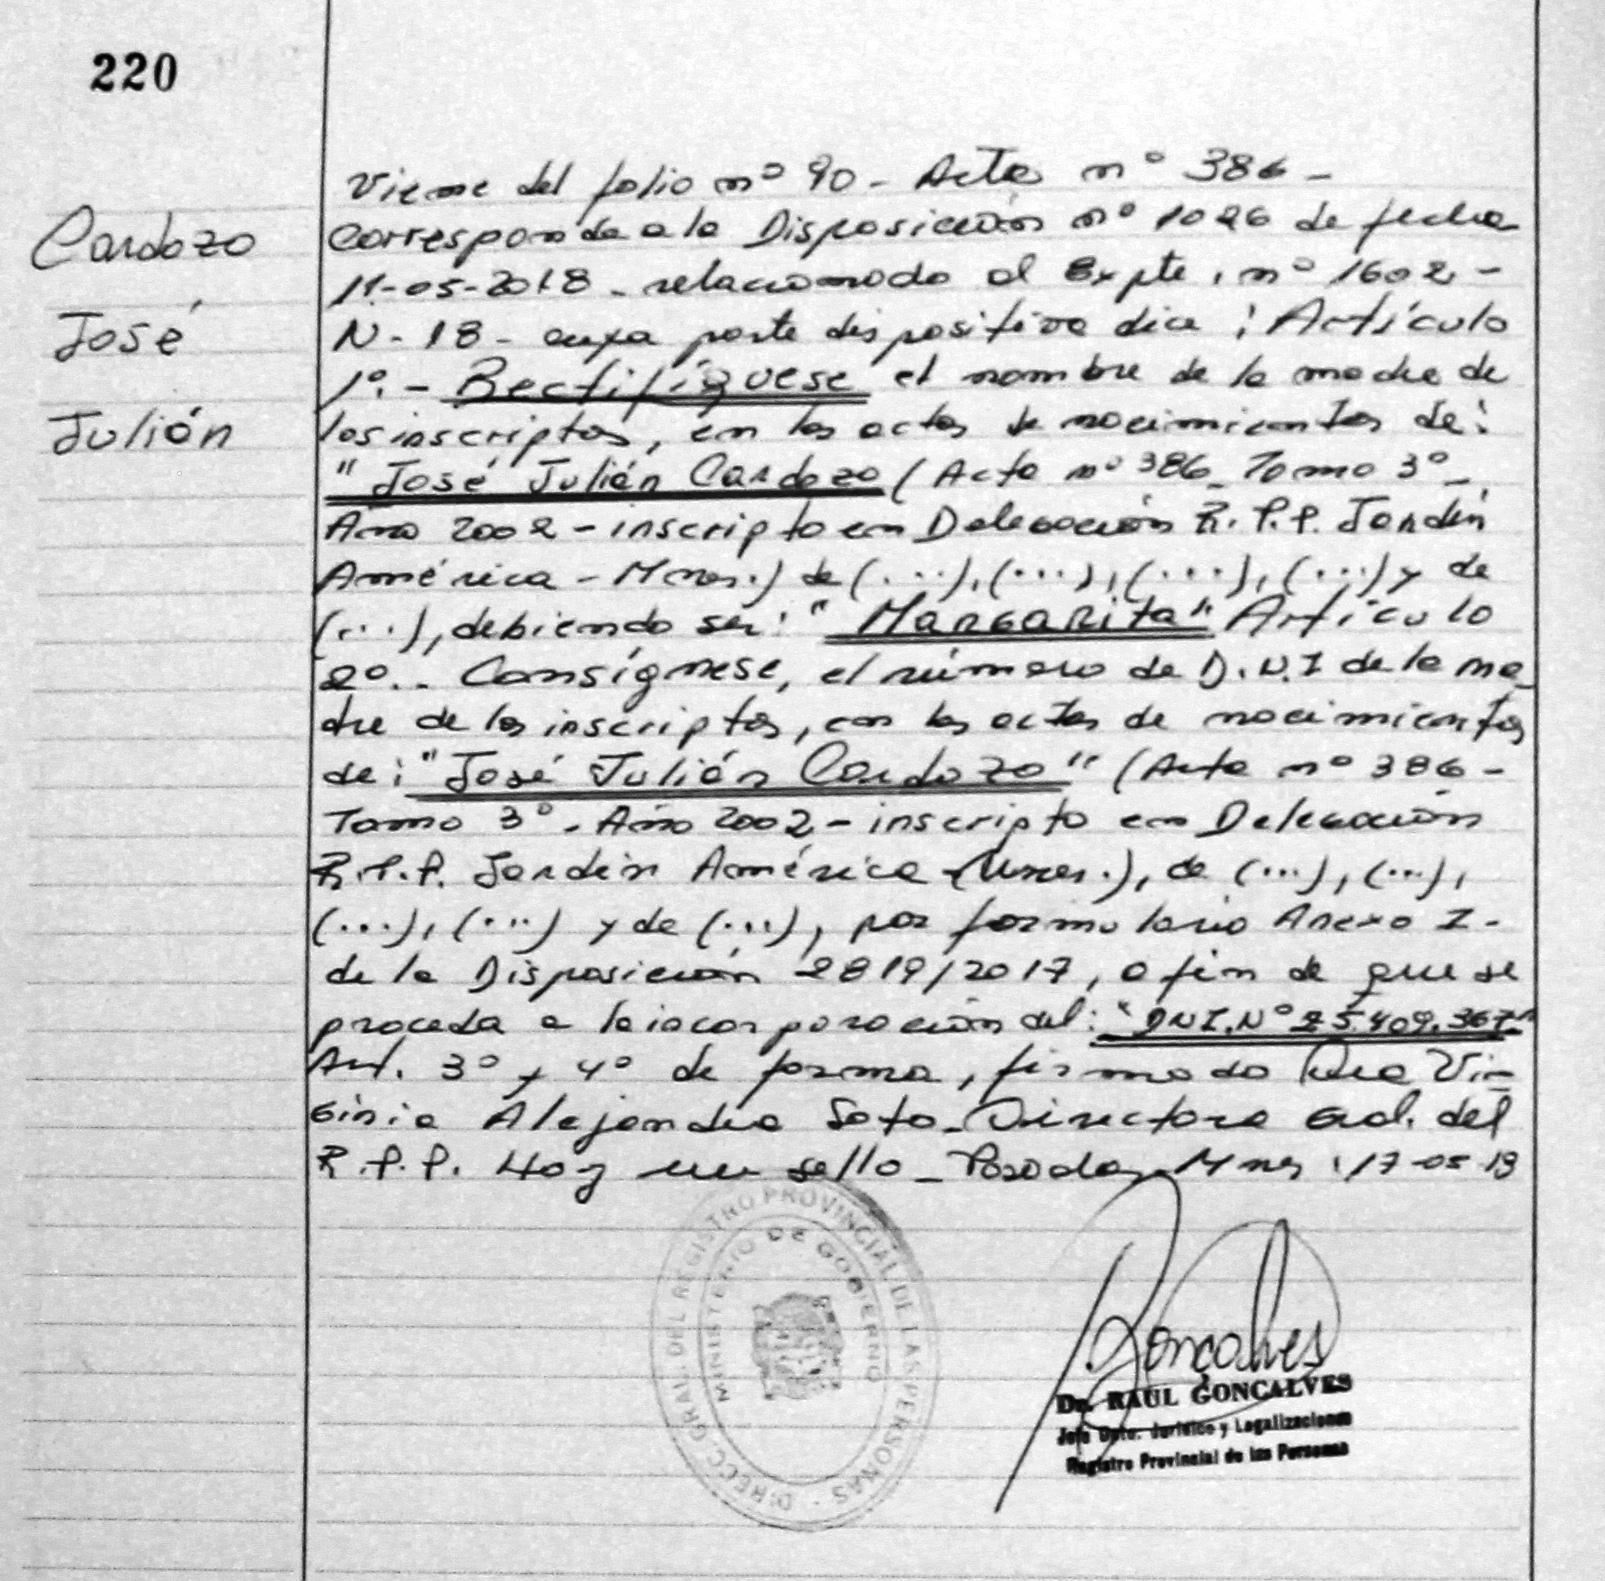 220
Cardozo
José
Julián
Viene del folio nº 90 - Acta nº 386 -
Corresponde a la Disposición nº 1026 de fecha
11-05-2018 - relacionado al Expte. nº 1602 -
N - 18 - cuya parte dispositiva dice: Artículo
1º. - Rectifíquese el nombre de la madre de
los inscriptos, en las actas de nacimientos de:
"José Julián Cardozo (Acta nº 386 - Tomo 3º -
Año 2002 - inscripto en Delegación R.P.P. Jardín
América - Mnes.) de (...), (...), (...), (...) y de
(...), debiendo ser: "Margarita" Artículo
2º.. Consígnese, el número de D.N.I de la ma-
dre de los inscriptos, en las actas de nacimientos
de: "José Julián Cardozo" (Acta nº 386 -
Tomo 3º. Año 2002 - inscripto en Delegación
R.P.P. Jardín América - (Mnes.), de (...), (...),
(...), (...) y de (...), por formulario Anexo I -
de la Disposición 2819/2017, a fin de que se
proceda a la incorporación del: "DNI. Nº 25.409.367"
Art. 3º y 4º de forma, firmado Dra Vir-
ginia Alejandra Soto - Directora Gral. del
R.P.P. Hay un sello - Posadas Mnes, 17-05-18
DIRECC. GRAL. DEL REGISTRO PROVINCIAL DE LAS PERSONAS
MINISTERIO DE GOBIERNO
Gonçalves
Dr. RAUL GONCALVES
Jefe Dpto. Jurídico y Legalizaciones
Registro Provincial de las Personas